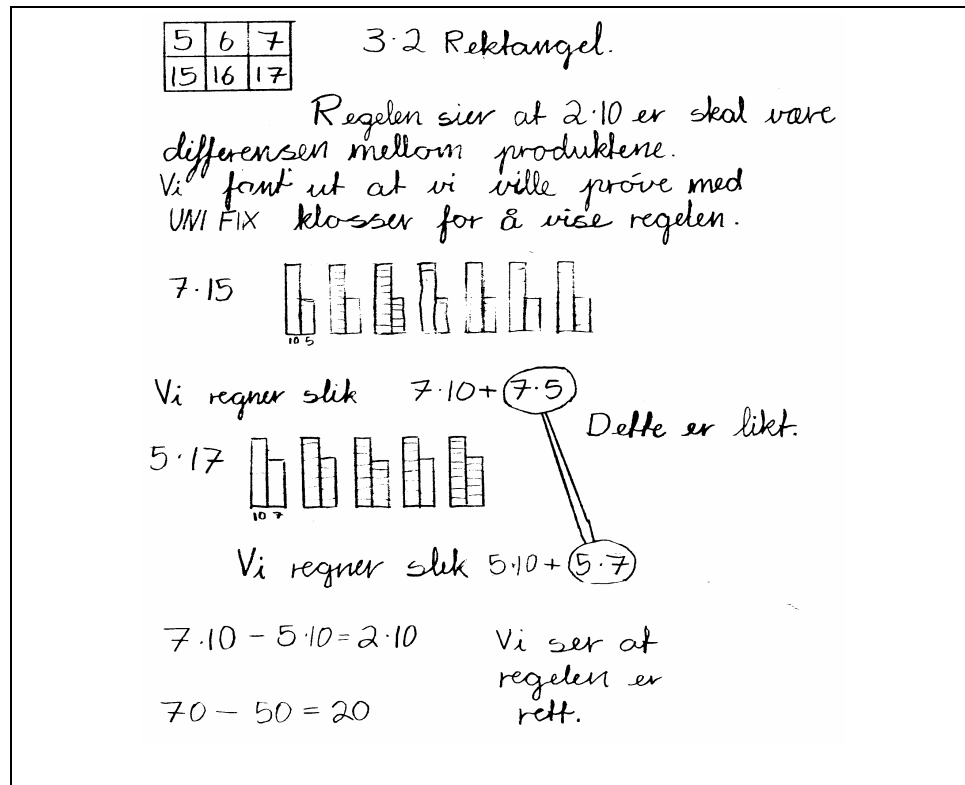 5 6 7 3·2 Rektangel.
15 16 17
Regelen sier at 2·10 er skal være
differensen mellom produktene.
Vi fant ut at vi ville prøve med
UNIFIX klosser for å vise regelen.
7·15
10 5
Vi regner slik 7·10+7·5
Dette er likt.
5·17
10 7
Vi regner slik 5·10+5·7
7·10 - 5·10=2·10 Vi ser at
regelen er
70 - 50 = 20 rett.